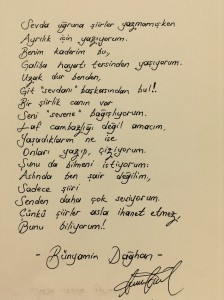 Sevda uğruna şiirler yazmamışken
Ayrılık için yazıyorum.
Benim kaderim bu,
Galiba hayatı tersinden yaşıyorum.
Uzak dur benden,
Git "sevdanı" başkasından bul!
Bir şiirlik canın var
Seni "sevene" bağışlıyorum.
Laf cambazlığı değil amacım,
Yaşadıklarım ne ise
Onları yazıp, çiziyorum.
Şunu da bilmeni istiyorum:
Aslında ben şair değilim,
Sadece şiiri
Senden daha çok seviyorum.
Çünkü şiirler asla ihanet etmez,
Bunu biliyorum!
- Bünyamin Dağhan -